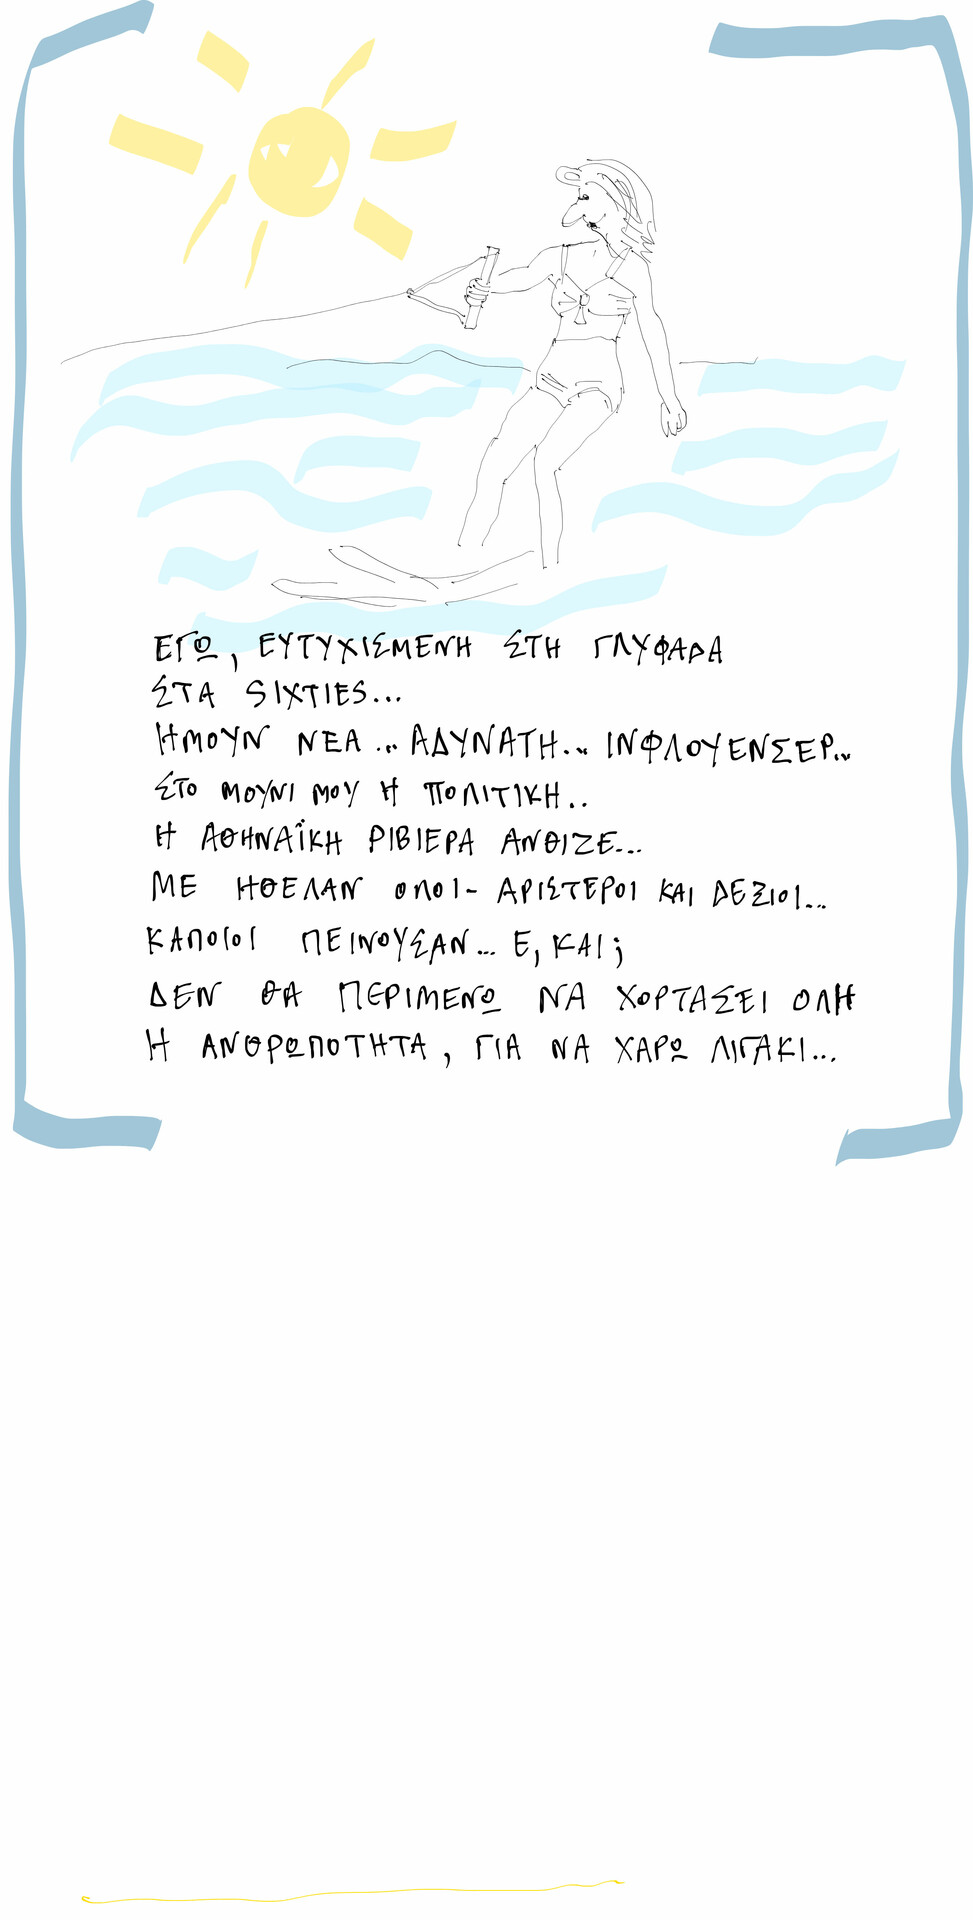 ΕΓΩ, ΕΥΤΥΧΙΣΜΕΝΗ ΣΤΗ ΓΛΥΦΑΔΑ
ΣΤΑ SIXTIES...
ΗΜΟΥΝ ΝΕΑ... ΑΔΥΝΑΤΗ... ΙΝΦΛΟΥΕΝΣΕΡ...
ΣΤΟ ΜΟΥΝΙ ΜΟΥ Η ΠΟΛΙΤΙΚΗ..
Η ΑΘΗΝΑΪΚΗ ΡΙΒΙΕΡΑ ΑΝΘΙΖΕ...
ΜΕ ΗΘΕΛΑΝ ΟΛΟΙ- ΑΡΙΣΤΕΡΟΙ ΚΑΙ ΔΕΞΙΟΙ...
ΚΑΠΟΙΟΙ ΠΕΙΝΟΥΣΑΝ... Ε, ΚΑΙ;
ΔΕΝ ΘΑ ΠΕΡΙΜΕΝΩ ΝΑ ΧΟΡΤΑΣΕΙ ΟΛΗ
Η ΑΝΘΡΩΠΟΤΗΤΑ, ΓΙΑ ΝΑ ΧΑΡΩ ΛΙΓΑΚΙ...